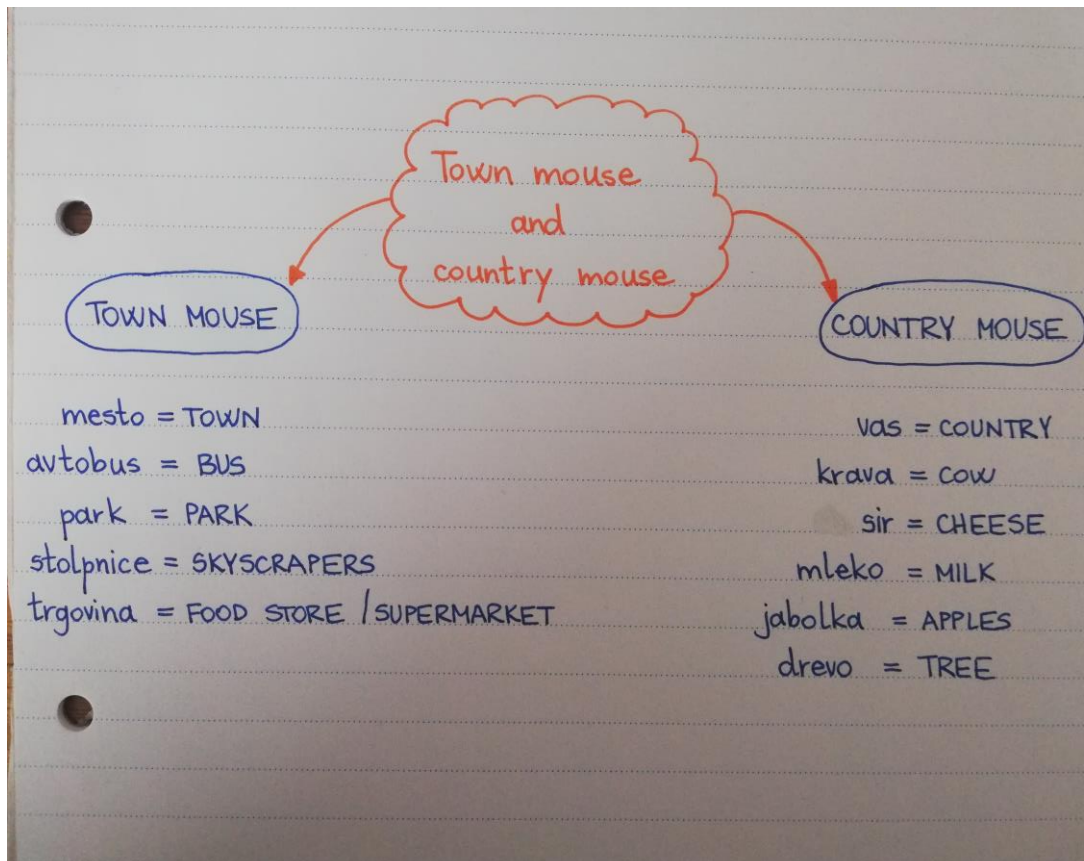 Town mouse
and
country mouse
TOWN MOUSE
mesto = TOWN
avtobus = BUS
park = PARK
stolpnice = SKYSCRAPERS
trgovina = FOOD STORE / SUPERMARKET
COUNTRY MOUSE
vas = COUNTRY
krava = COW
sir = CHEESE
mleko = MILK
jabolka = APPLES
drevo = TREE